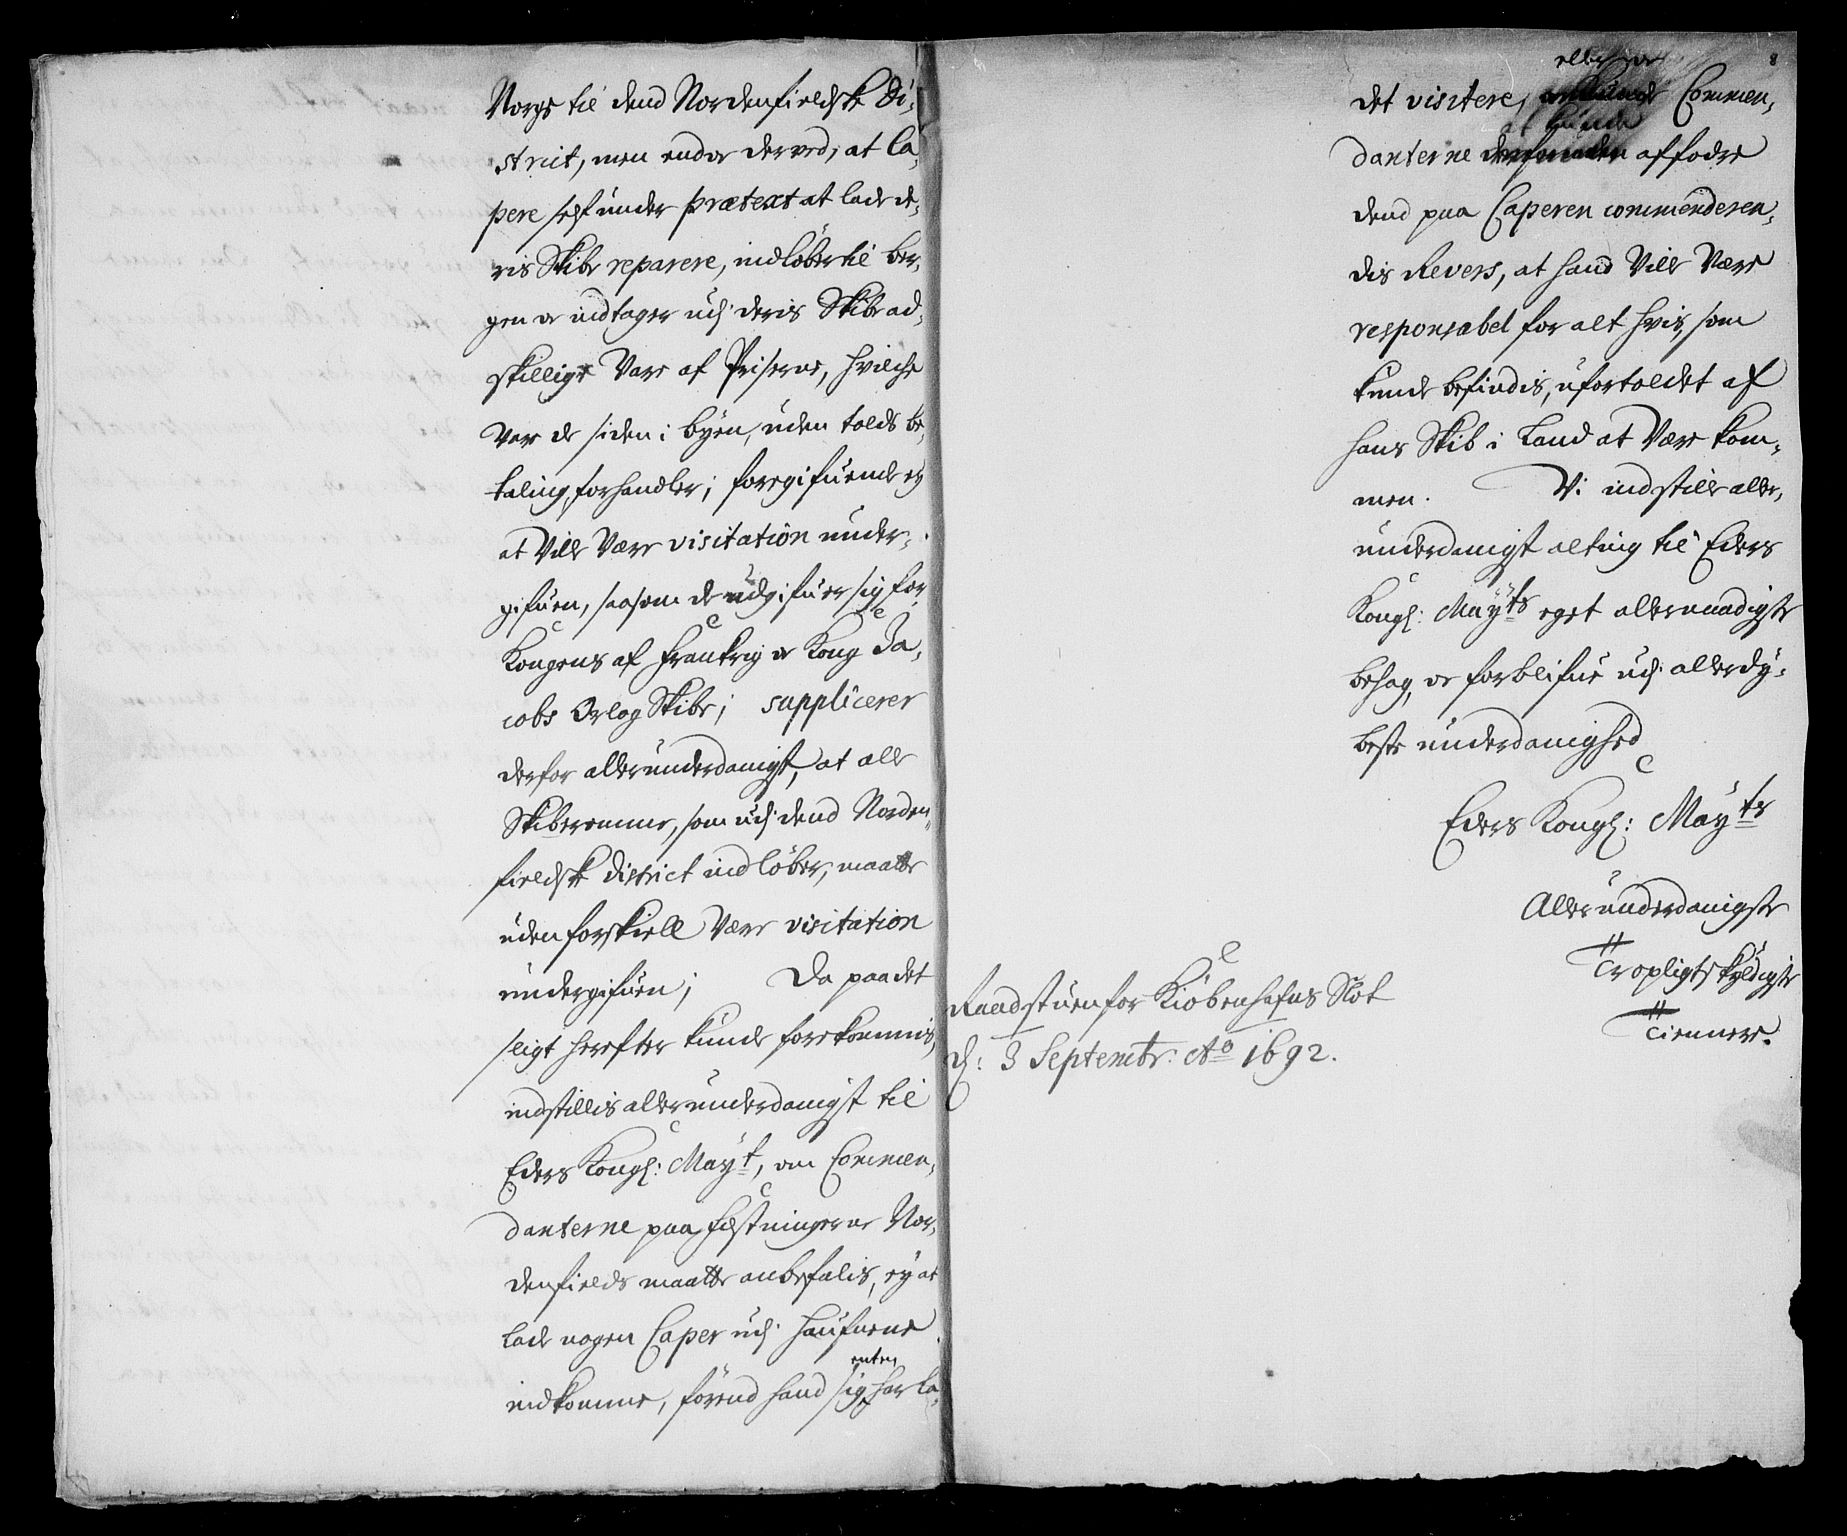 Norge til dend Nordenfieldske Di-
strict, men endog derved, at Ca-
pere self under prætext at lade de-
ris Skibe reparere, indløber til Ber-
gen og indtager udj deris Skibe ad-
skillige Vare af Priserne, hvilche
Vare de siden i byen, uden tolds be-
taling, forhandler; foregifuende ey
at Ville Være visitation under-
gifuen, saasom de udgifuer sig for
Kongens af Franckrig og Kong Ja-
cobs Orlog Skibe; supplicerer
derfor allerunderdanigst, at alle
Skiberomme, som udj dend Norden-
fieldske district indløber, maatte
uden forskiell Være visitation
undergifuen; Da paa det
sligt herefter kunde forekommis,
indstillis allerunderdanigst til
Eders Kongl: Mayt, om Commen-
danterne paa Fæstningerne Nor-
denfields maatte anbefalis, ey at
lade nogen Caper udj Haufnene
enten
indkomme, førend hand sig har la-
8
eller og
det visitere, Commen-
kunde
danterne affodre
dend paa Caperen commenderen-
dis Revers, at hand Ville Være
responsabel for alt hvis, som
kunde befindis, ufortoldet af
hans Skib i Land at Være kom-
men. Vi indstille aller-
underdanigst alting til Eders
Kongl: Mayts eget allernaadigste
behag, og forblifue udj allerdy-
beste underdanighed
Eders Kongl: Mayts
Allerunderdanigste
Tropligtskyldigste
Tiennere.
Raadstuen for Kiøbenhafns Slot
d: 3 Septembr: Ao 1692.